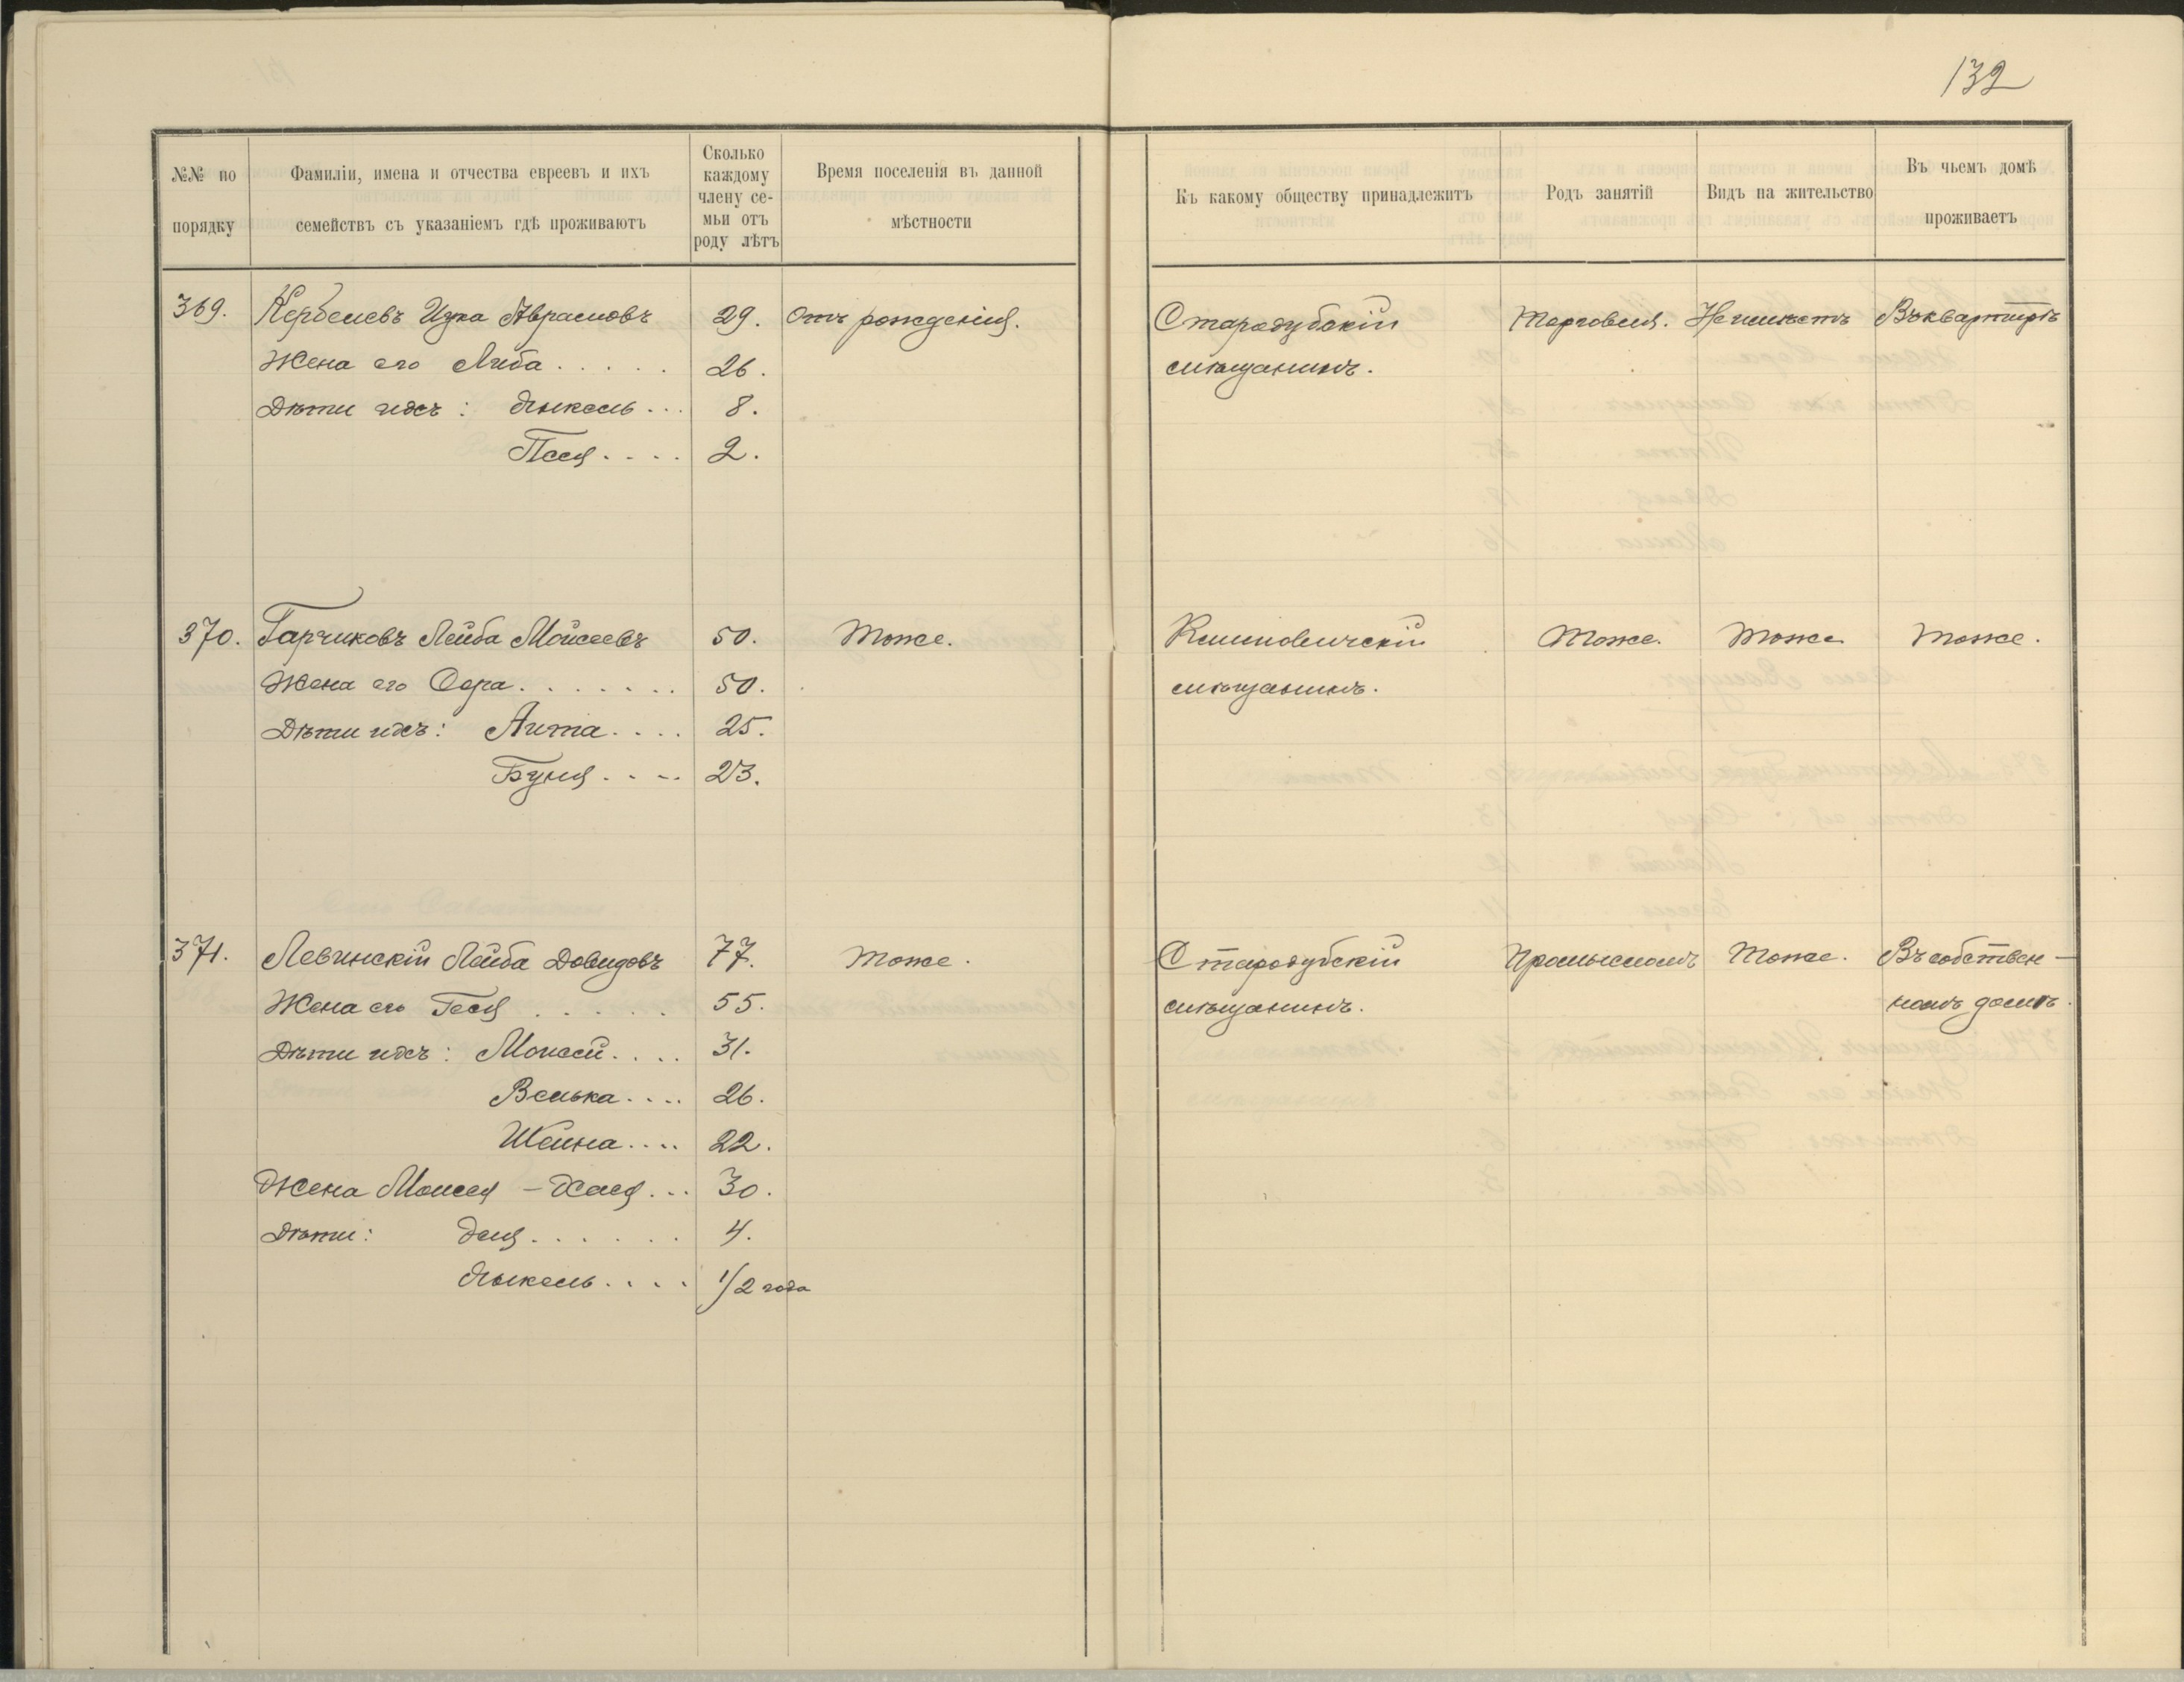 132
№№ по порядку
Фамиліи, имена и отчества евреевъ и ихъ семействъ съ указаніемъ гдѣ проживаютъ
Сколько каждому члену семьи отъ роду лѣтъ
Время поселенія въ данной мѣстности
Къ какому обществу принадлежитъ
Родъ занятій
Видъ на жительство
Въ чьемъ домѣ проживаетъ
369. Кербелевъ Ицка Аврамовъ 29. Отъ рожденія. Стародубскій Торговля. Неимѣетъ Въ квартирѣ
Жена его Либа 26. мѣщанинъ.
Дѣти ихъ: 8.
Песя 2.
370. Гарчиковъ Лейба Мойсеевъ 50. Тоже. Климовичскій Тоже. Тоже Тоже.
Жена его Сора 50. мѣщанинъ.
Дѣти ихъ: 25.
Буня 23.
371. Левинскій Лейба Довидовъ 77. Тоже. Стародубскій Промысломъ Тоже. Въ собствен-
Жена его Гося 55. мѣщанинъ. номъ домѣ.
Дѣти ихъ: Моисей 31.
Велька 26.
Шейна 22.
Жена Моисея – Хася 30.
Дѣти: 4.
1/2 года